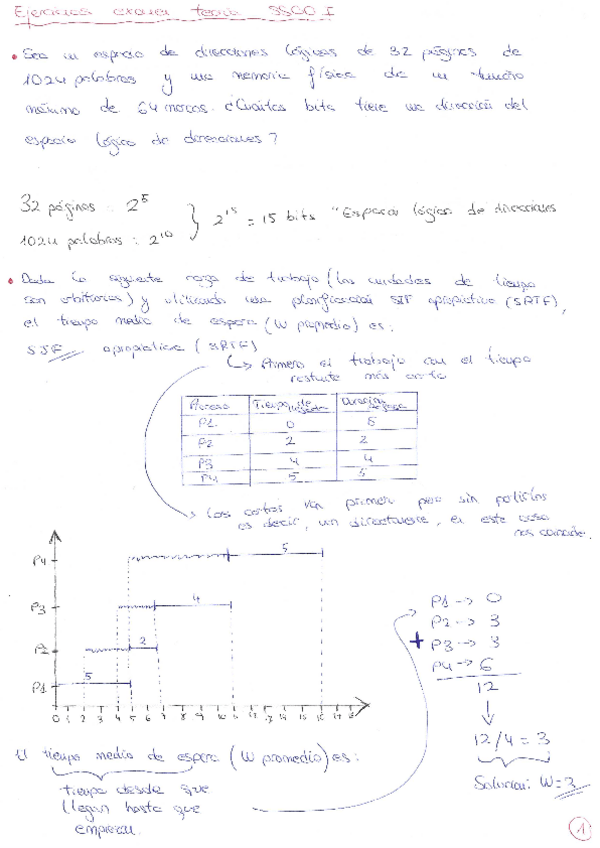 Ejercicios examen teoría SSOO I
• Sea un espacio de direcciones lógicas de 32 páginas de
1024 palabras y una memoria física de un tamaño
máximo de 64 marcos. ¿Cuántos bits tiene una dirección del
espacio lógico de direcciones?
32 páginas : 2^5
1024 palabras : 2^10
} 2^15 = 15 bits "Espacio lógico de direcciones
• Dada la siguiente carga de trabajo (las unidades de tiempo
son arbitrarias) y utilizando una planificación SJF apropiativa (SRTF),
el tiempo medio de espera (W promedio) es:
SJF apropiativa (SRTF)
↳ Primero el trabajo con el tiempo
restante más corto
Proceso Tiempo de llegada Duración
P1 0 5
P2 2 2
P3 4 4
P4 5 5
→ Los cortos van primero pero sin
es decir, un en este caso
P4 5
P3 4
P2 2
P1 5
0 1 2 3 4 5 6 7 8 9 10 11
P1 -> 0
P2 -> 3
+ P3 -> 3
P4 -> 6
12
↓
12/4 = 3
Solución: W=3
El tiempo medio de espera (W promedio) es:
tiempo desde que
llegan hasta que
empiezan.
1